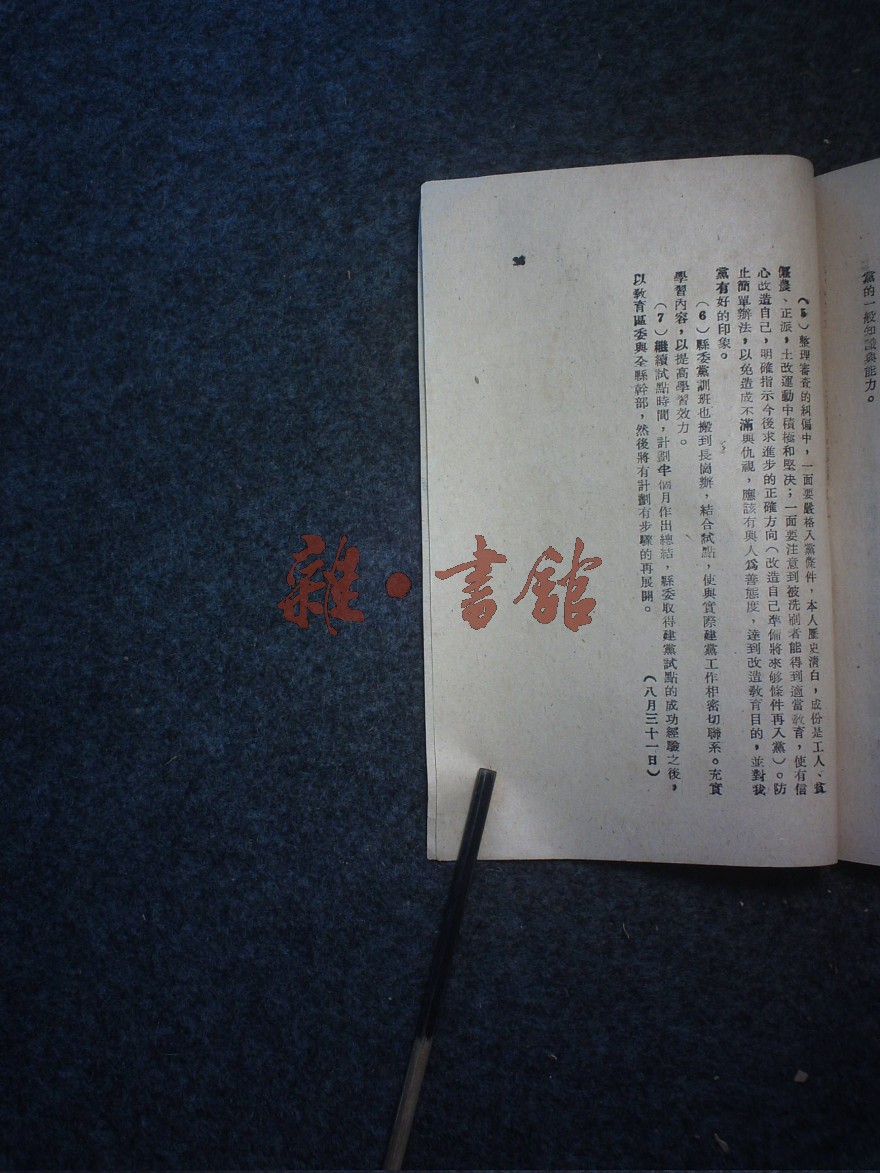 黨的一般知識與能力。
（5）整理審查的糾偏中，一面要嚴格入黨條件，本人歷史清白，成份是工人、貧
僱農、正派，土改運動中積極和堅决；一面要注意到被洗刷者能得到適當敎育，使有信
心改造自己，明確指示今後求進步的正確方向（改造自己準備將來够條件再入黨）。防
止簡單辦法，以免造成不滿與仇視，應該有與人爲善態度，達到改造敎育目的，並對我
黨有好的印象。
（6）縣委黨訓班也搬到長崗辦，結合試點，使與實際建黨工作相密切聯系。充實
學習內容，以提高學習效力。
（7）繼續試點時間，計劃半個月作出總結，縣委取得建黨試點的成功經驗之後，
以敎育區委與全縣幹部，然後將有計劃有步驟的再展開。
（八月三十一日）
雜·書館